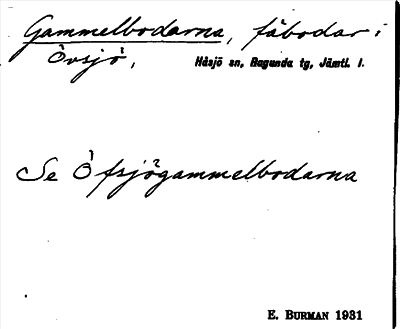 Gammelbodarna, fäbodar i
Óvsjö̀, Håsjö sn, Ragunda tg, Jämtl. l.
Se Ö̀fsjögammelbodarna
E. BURMAN 1931